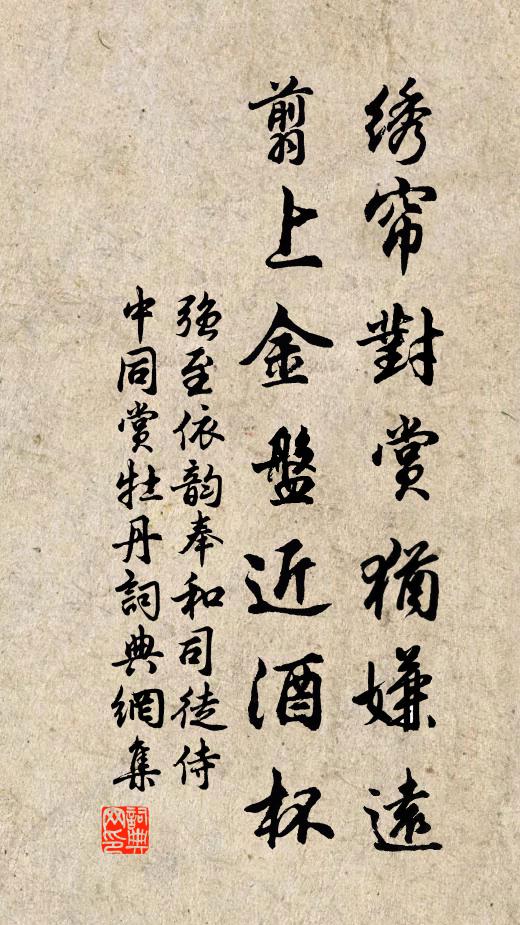 绣帘對赏猶嫌遠
翦上金盤近酒杯
強至依韵奉和司徒侍
中同赏牡丹詞典網集
詞典网印